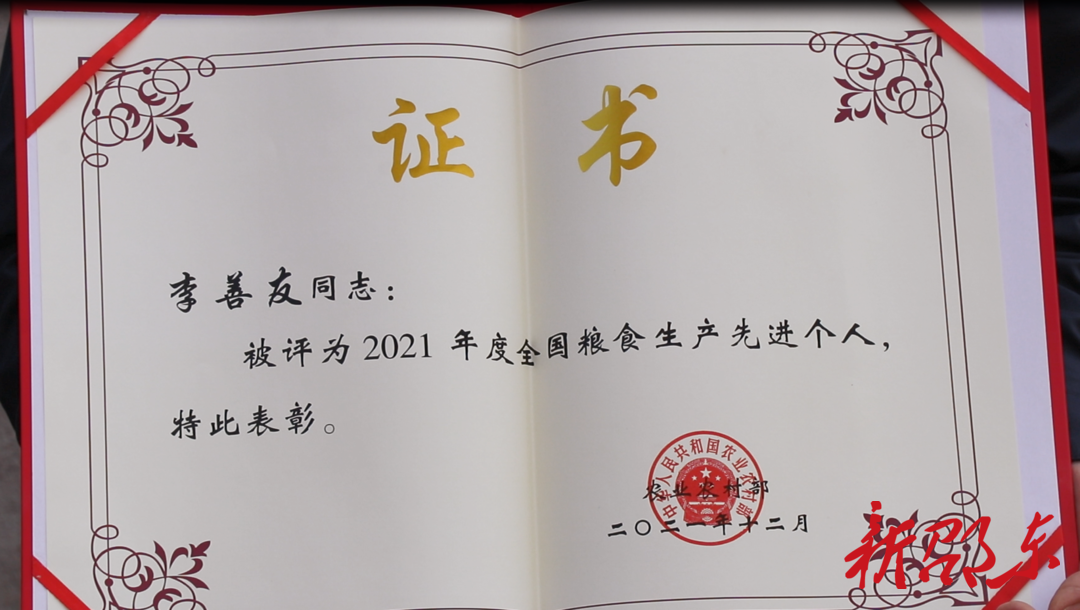 证书
李善友同志：
被评为2021年度全国粮食生产先进个人，
特此表彰。
中华人民共和国农业农村部
农业农村部
二〇二一年十二月
新邵东